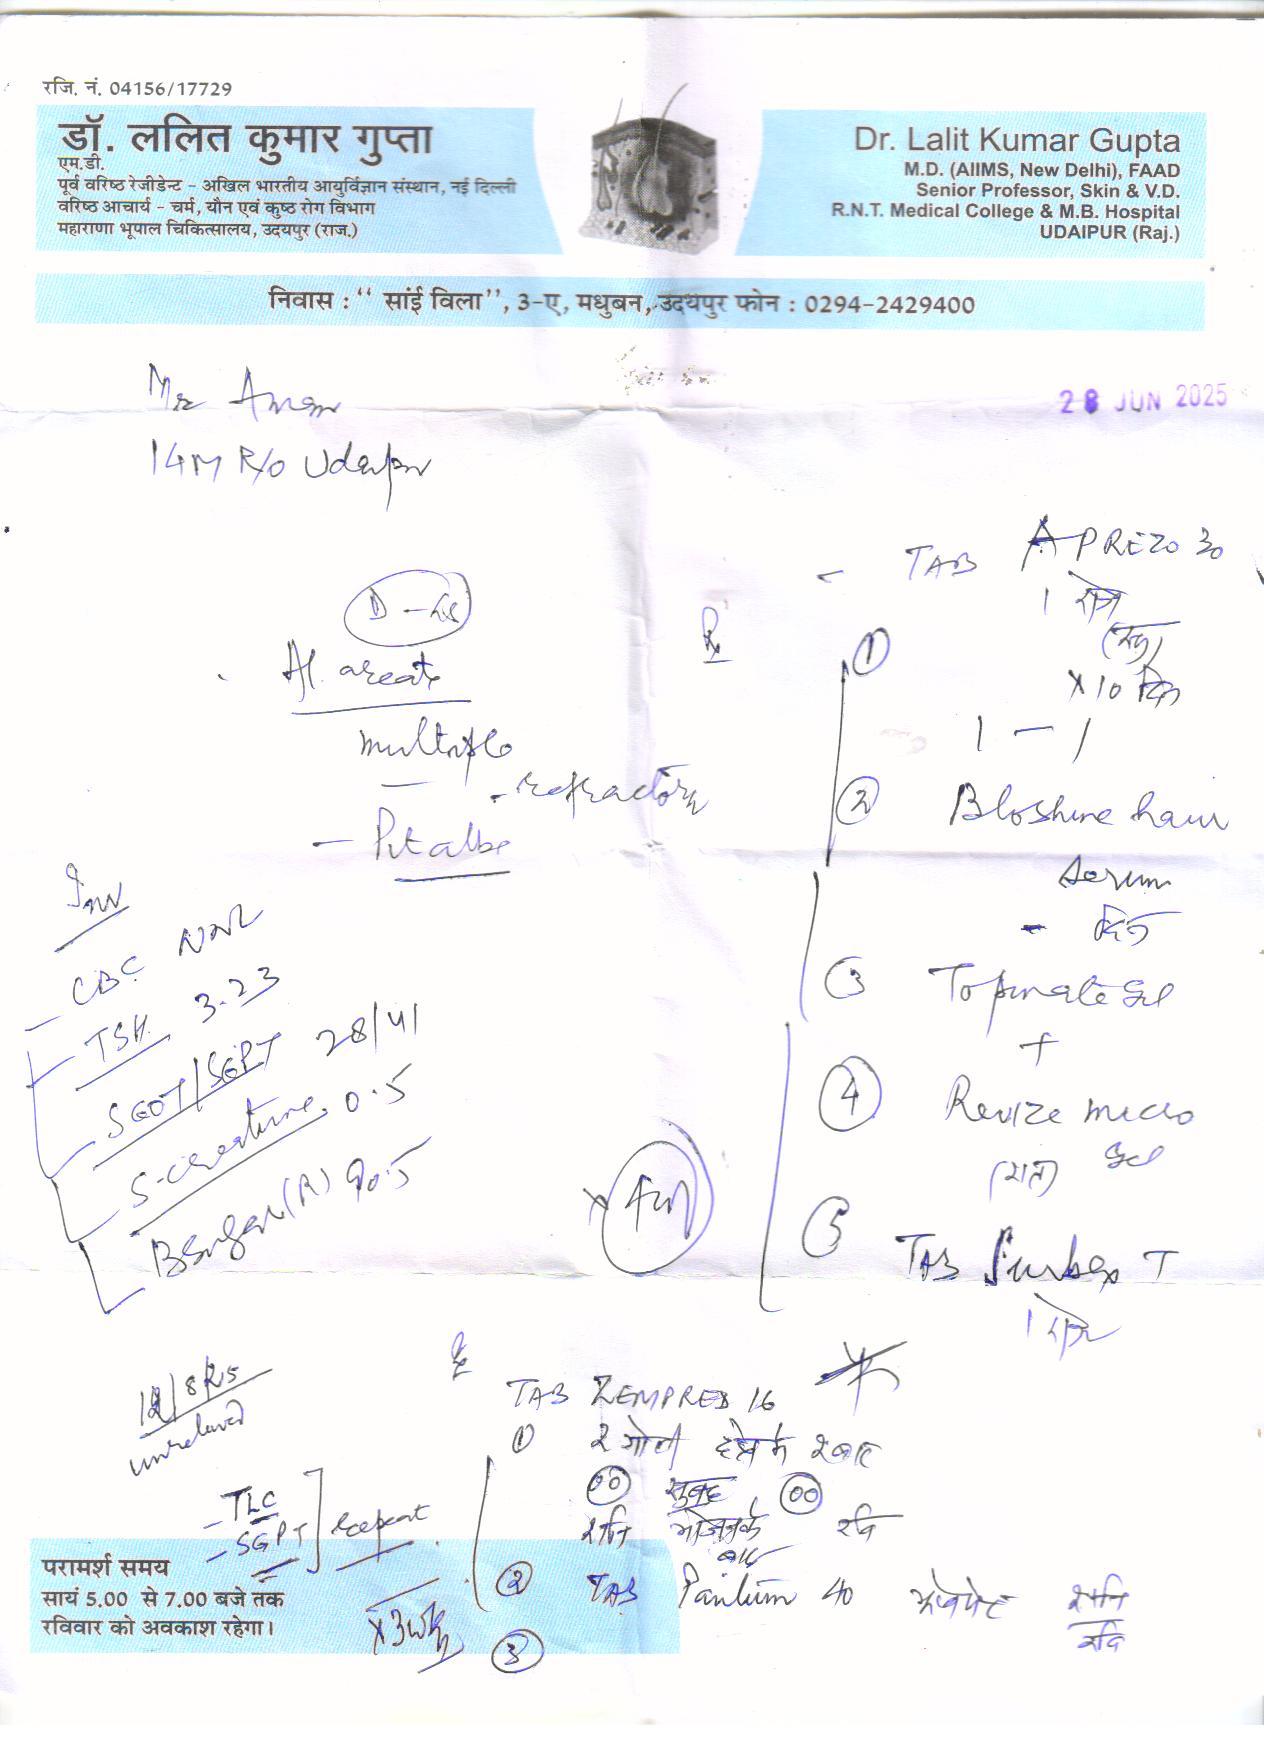 रजि. नं. 04156/17729
डॉ. ललित कुमार गुप्ता
एम.डी.
पूर्व वरिष्ठ रेजीडेन्ट - अखिल भारतीय आयुर्विज्ञान संस्थान, नई दिल्ली
वरिष्ठ आचार्य - चर्म, यौन एवं कुष्ठ रोग विभाग
महाराणा भूपाल चिकित्सालय, उदयपुर (राज.)
Dr. Lalit Kumar Gupta
M.D. (AIIMS, New Delhi), FAAD
Senior Professor, Skin & V.D.
R.N.T. Medical College & M.B. Hospital
UDAIPUR (Raj.)
निवास : “ सांई विला”, 3-ए, मधुबन, उदयपुर फोन : 0294-2429400
28 JUN 2025
Mr Aman
14M R/O Udaipur
Al. areata
multiple
- refractory
- Pit alba
Inv
- CBC NNL
- TSH 3.23
- SGOT/SGPT 28/41
S-creatinine 0.5
(R) 90.5
Rx
- TAB APREZO 30
1 रोज
x 10 दिन
①
1 - 1
② Bloshine hair
serum
- दिन
③ Topinate Gel
+
④ Revize micro
(रात) Gel
⑤ TAB Surbex T
1 रोज
12/8/25
unrelieved
- TLC
- SGPT
repeat
TAB ZEMPRED 16
① २ गोली हफ्ते के २ बार
सुबह
शनि भोजन के रवि
बाद
② TAB Pantium 40 शनि
रवि
③
परामर्श समय
सायं 5.00 से 7.00 बजे तक
रविवार को अवकाश रहेगा।